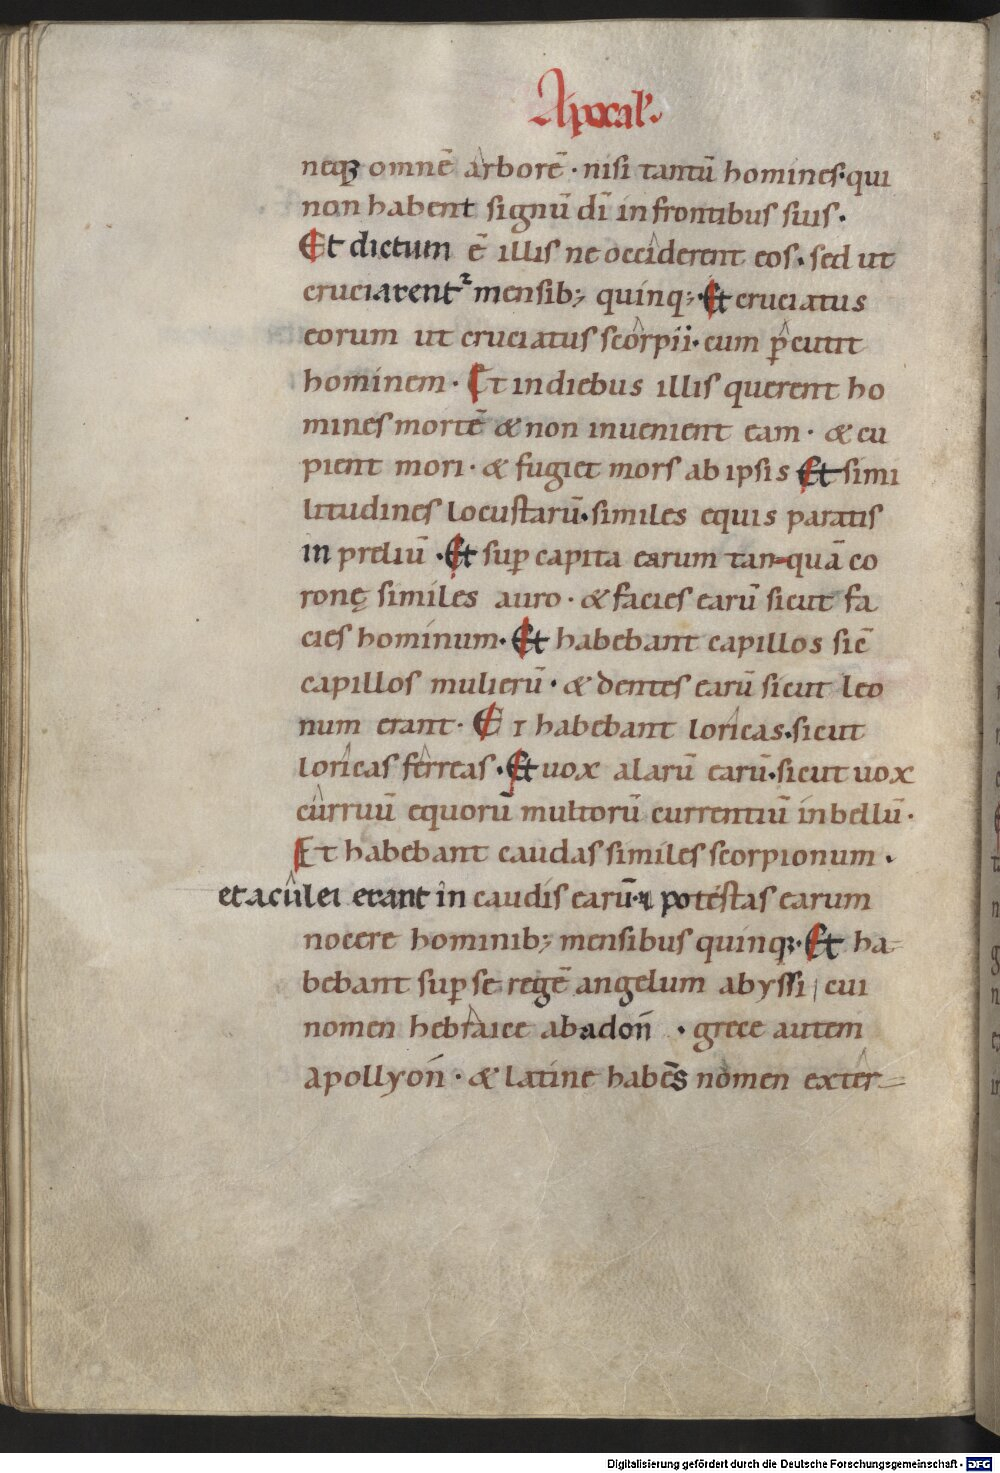 Apocal'.
neqꝫ omnē arborē · nisi tantū homines · qui
non habent signū dī in frontibus suis ·
Et dictum ē illis ne occiderent eos · sed ut
cruciarent᷑ mensibꝫ quinqꝫ · Et cruciatus
eorum ut cruciatus scorpii · cum p̄cutit
hominem · Et in diebus illis querent ho
mines mortē & non inuenient eam · & cu
pient mori · & fugiet mors ab ipsis Et simi
litudines locustarū · similes equis paratis
in preliū · Et sup̄ capita earum tan-quā co
ronę similes auro · & facies earū sicut fa
cies hominum · Et habebant capillos sic̄
capillos mulierū · & dentes earū sicut leo
num erant · Et habebant loricas · sicut
loricas ferreas · Et uox alarū earū · sicut uox
curruū equorū multorū currentiū in bellū ·
Et habebant caudas similes scorpionum ·
et aculei erant in caudis earū · ⁊ potestas earum
nocere hominibꝫ mensibus quinqꝫ · Et ha=
bebant sup̄ se regē angelum abyssi / cui
nomen hebraice abadon̄ · grece autem
apollyon̄ · & latine habēs nomen exter=
Digitalisierung gefördert durch die Deutsche Forschungsgemeinschaft - DFG